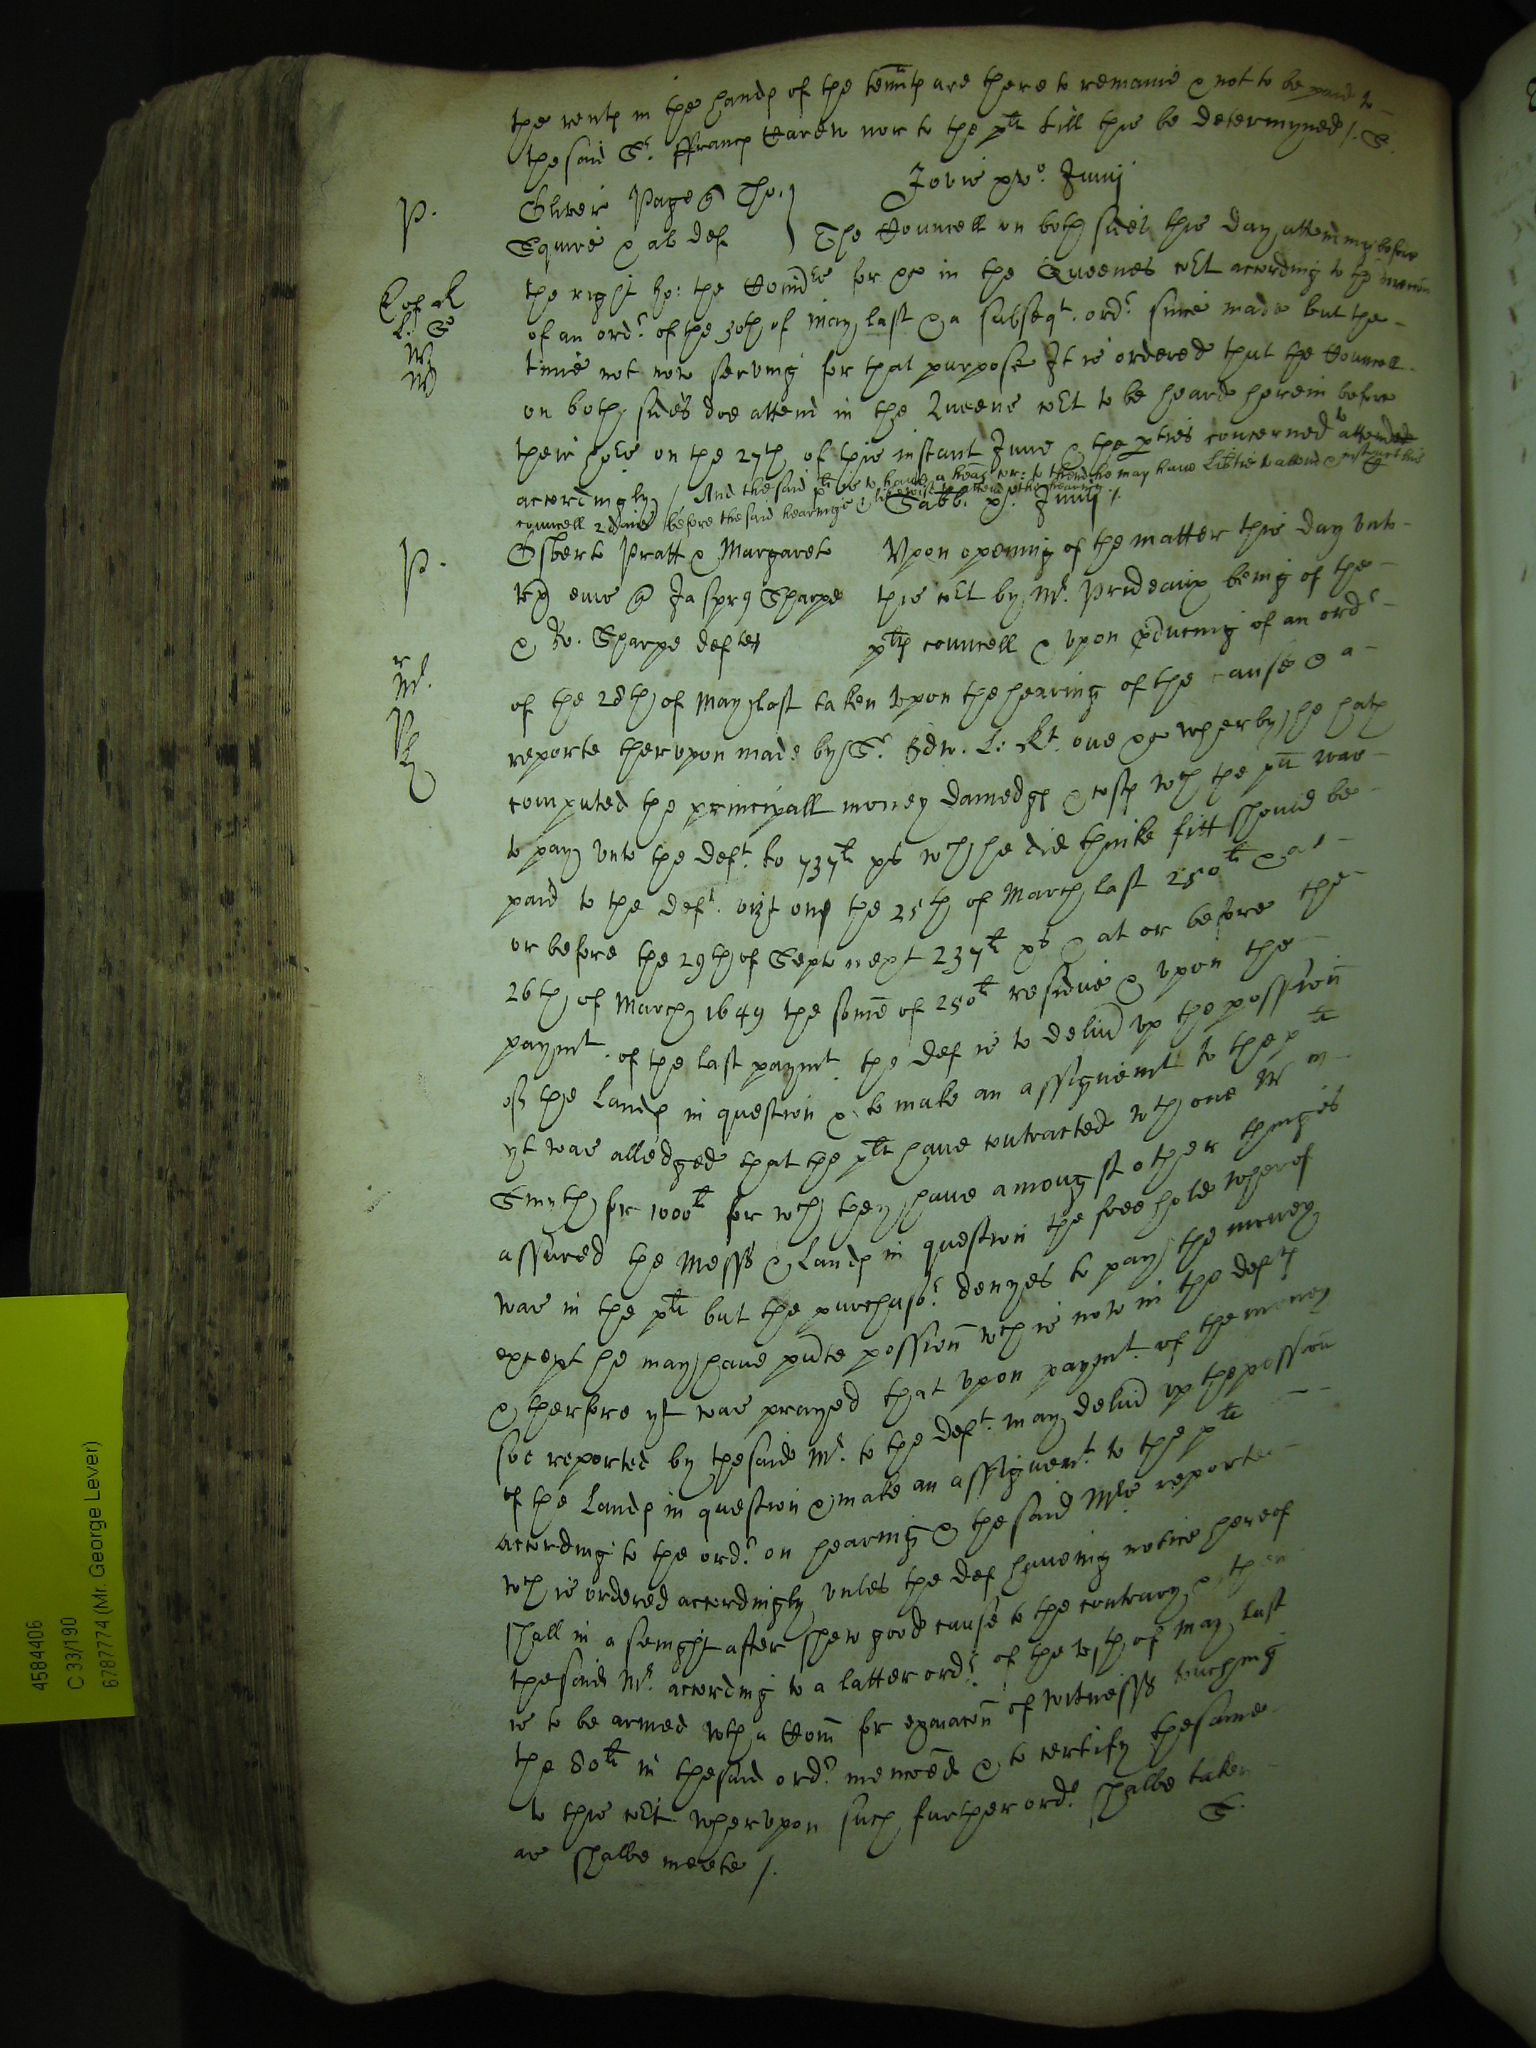 the rents in the hands of the tennts are there to remaine & not to be paid to
the said Sr. ffrancis Carew nor to the plt till this be determyned /. S.
Jovis xvo. Junij
P.
Oliver Page Tho:
Squire & al def
The Councell on both sides this day attending before
the right ho: the Comrs for &c in the Queenes Cort according to the
of an ordr. of the 30th of May last & a subseqt. ordr. since made but the
time not now serving for that purpose It is ordered that the Councell
on both sides doe attend in the Queens Cort to be heard herein before
their lops on the 27th of this instant June & the pties concerned to attend
accordingly / And the said plt is to have a to thend he may have libtie to attend & instruct his
councell 2 daies before the said hearinge & likewise to attend the hearing
Sabb. Junij /.
P.
Osberto Pratt & Margareto
Ux eius Jaspro Sharpe
& Sharpe deftes
Upon opening of the matter this day unto
this cort by Mr. Prideaux being of the
plts councell & upon pducing of an ordr
of the 28th of May last taken upon the hearing of the cause & a
reporte therupon made by Sr. Edw. L: Kt. one &c wherby he hath
computed the principall money damedgs & costs wch the plt was
to pay unto the deft. to 737li xs wch he did thinke fitt should be
paid to the deft. vizt one the 25th of March last 250li & at
or before the 29th of Septo next 237li xs & at or before the
26th of March 1649 the some of 250li residue & upon the
paymt. of the last paymt. the def is to delivr up the possion
of the Lands in question & to make an assignemt to the plt
yt was alledged that the plt have contracted wth one Wm
Smyth for 1000li for wch they have amongst other things
assured the Messs & Lands in question the freehold wherof
was in the plt but the purchasr. denyes to pay the money
except he may have psnte possion wch is now in the defts
& therfore yt was prayed that upon paymt. of the money
soe reported by the said Mr. to the deft. may delivr up the possion
of the Lands in question & make an assignemt. to the plt
according to the ordr. on hearing & the said Mrs reporte
wch is ordered accordingly unles the def haveing notice hereof
shall in a senight after shew good cause to the contrary & then
the said Mr. according to a latter ordr. of the of May last
is to be armed wth a Com for exaiacon of witnesss touching
the 80li in the said ordr. mencoed & to certify the same
to this cort wherupon such further ordr. shalbe taken
as shalbe meete /. S.
4584406
C 33/190
6787774 (Mr. George Lever)